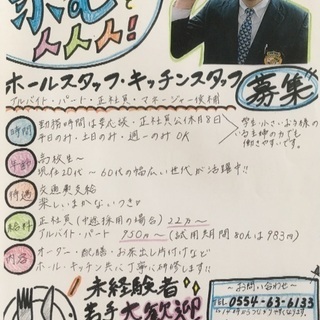 人人人!
ホールスタッフ・キッチンスタッフ
募集
アルバイト・パート・正社員・マネージャー候補
時間
勤務時間は要応談・正社員公休月8日
平日のみ・土日のみ・週一のみ OK
学生・小さいお子様の
いる主婦の方でも
働きやすいです。
年齢
高校生〜
現在20代〜60代の幅広い世代が活躍中!!
待遇
交通費支給
楽しいまかないつき♪
給料
正社員(中途採用の場合) 22万〜
アルバイト・パート 950円〜 (試用期間80Hは983円)
内容
オーダー・配膳・お茶出し片付けなど
ホール・キッチン共に丁寧に研修します!!
未経験者
若手大歓迎
〜お問い合わせ〜
TEL 0554-63-6133